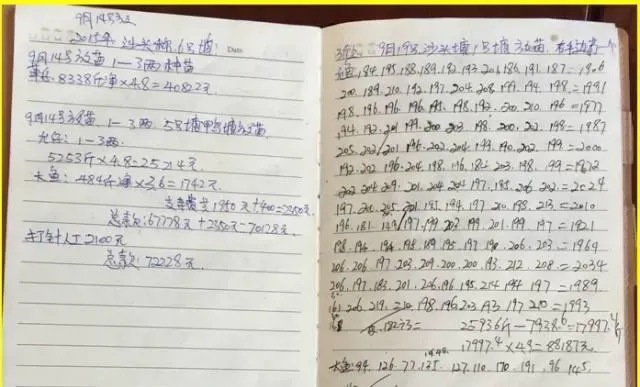 9月14号放
2015年 沙头乡 6号塘: Date
9月14号放苗 1—3两种苗
8338斤净×4.8=40022元
9月14号放苗. 1—3两. 5号塘 放苗
1—3两
5253斤×4.8=25214元
大鱼: 484斤净×3.6=1742元
1950元+400=2350元
总款:67778元+2350元=70128元
打针人工2100元
总款: 72228元
9月19号沙头塘1号塘放苗.
184.195.188.189.192.193.201.186.191.187=1906
200.189.210.192.197.204.208.199.194.198=1991
198.196.196.196.195.198.192.200.210.196=1977
194.192.201.199.200.203.198.200.202.198=1987
205.202.201.196.202.204.199.190.202.199=2000
192.202.196.204.198.116.182.203.198.199=1872
202.204.209.201.204.201.197.195.206.202=2024
197.200.205.201.185.194.197.210.198.213=2010
196.181.149.197.199.203.199.201.199.197=1921
198.194.194.198.189.195.197.190.206.203=1964
206.206.197.203.209.200.200.193.212.208=2034
206.197.183.201.206.196.195.214.194.197=1989
206.219.210.198.196.203.193.197.210=1993
25936斤-7938.6=17997.4斤
17997.4×4.9=88187元
大鱼: 126.77.135.127.110.170.191.96.145